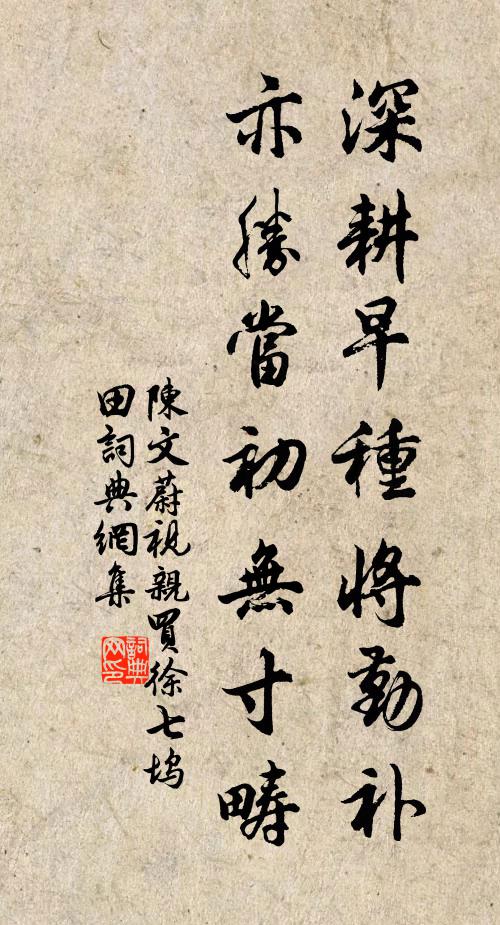 深耕早種將勤补
亦勝當初無寸疇
陳文蔚視親買徐七塢
田詞典網集
詞典网印